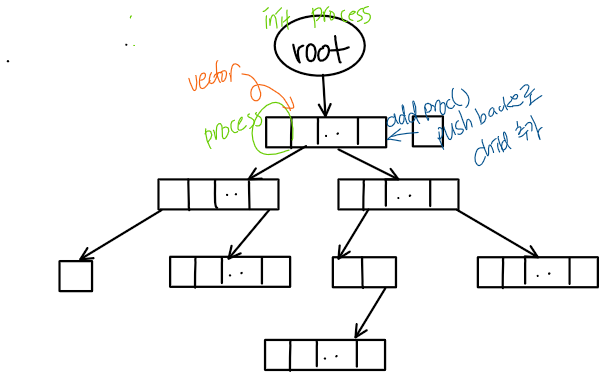 init process
root
vector
process
add proc()
push back으로
child 추가